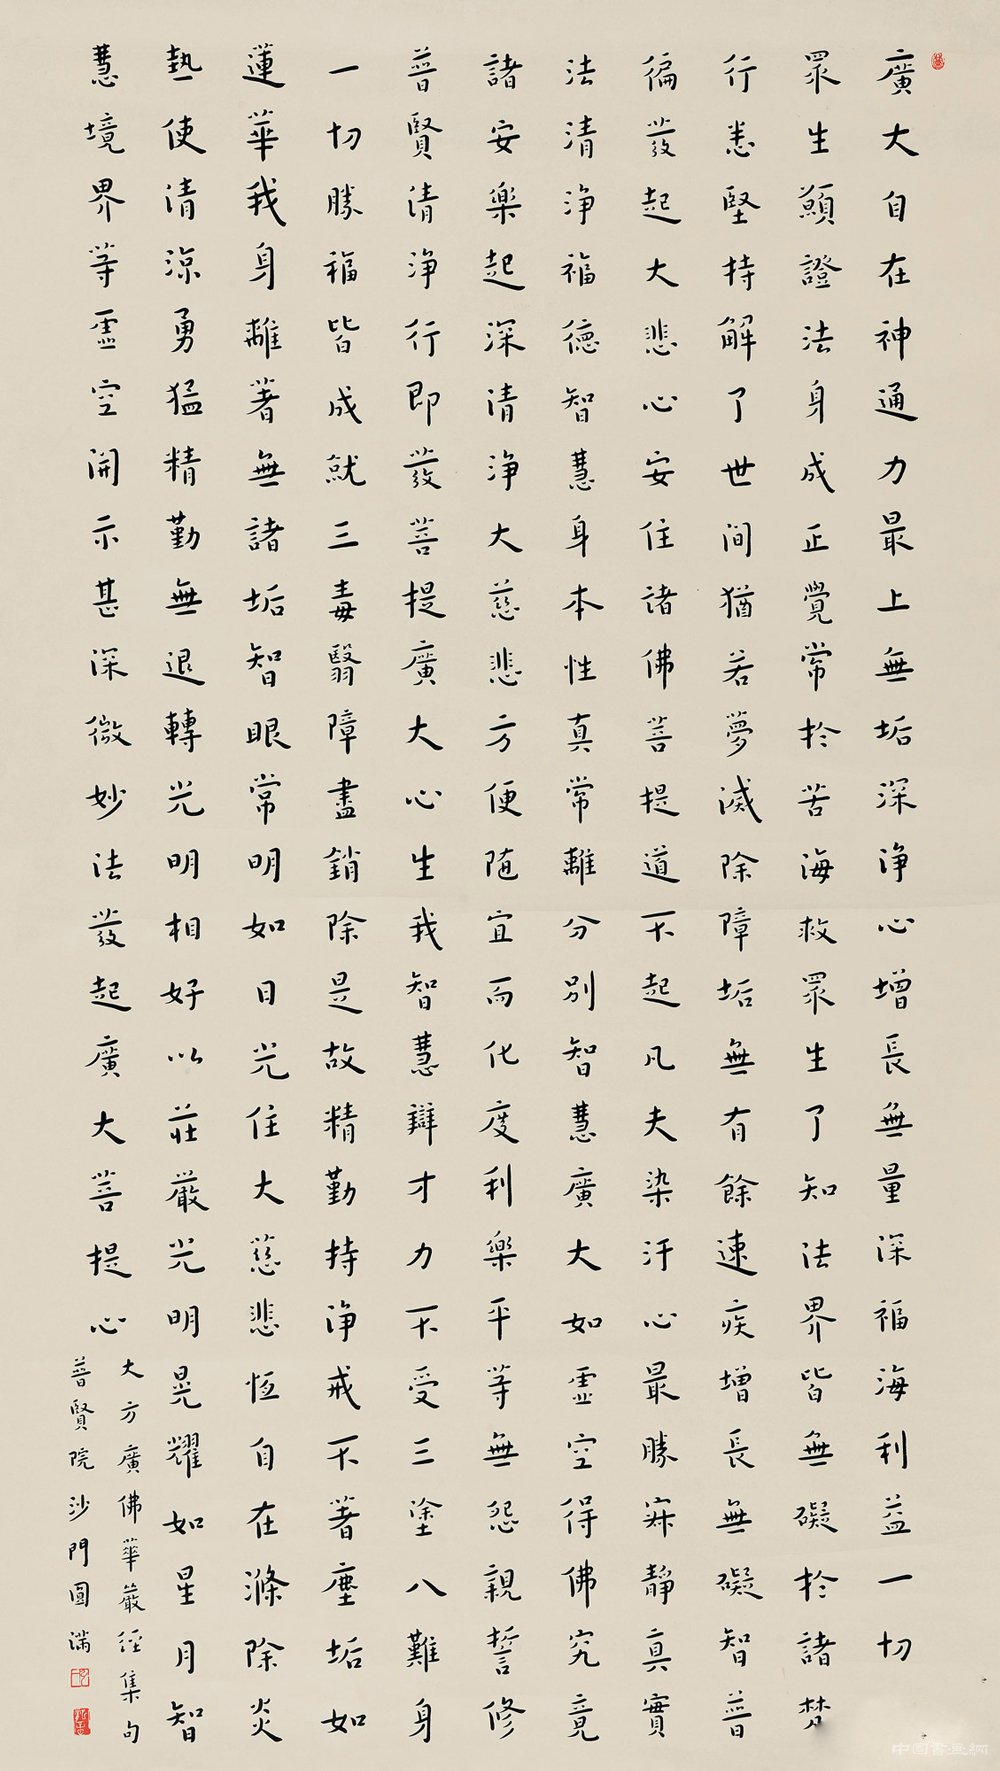 廣大自在神通力最上無垢深淨心增長無量深福海利益一切
眾生願證法身成正覺常於苦海救眾生了知法界皆無礙於諸梵
行悉堅持解了世間猶若夢滅除障垢無有餘速疾增長無礙智普
徧發起大悲心安住諸佛菩提道不起凡夫染汙心最勝寂靜真實
法清淨福德智慧身本性真常離分別智慧廣大如虛空得佛究竟
諸安樂起深清淨大慈悲方便随宜而化度利樂平等無怨親誓修
普賢清淨行即發菩提廣大心生我智慧辯才力不受三塗八難身
一切勝福皆成就三毒翳障盡銷除是故精勤持淨戒不著塵垢如
蓮華我身離著無諸垢智眼常明如日光住大慈悲恆自在滌除炎
熱使清涼勇猛精勤無退轉光明相好以莊嚴光明晃耀如星月智
慧境界等虛空開示甚深微妙法發起廣大菩提心
大方廣佛華嚴經集句
普賢院沙門圓滿